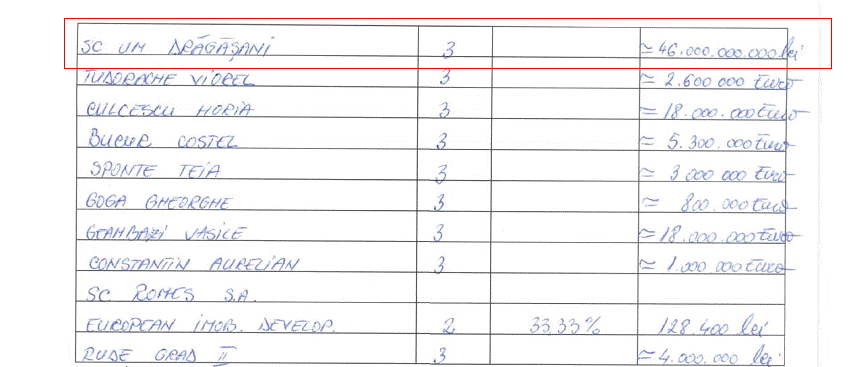 SC UM DRĂGĂȘANI 3 ≃ 46.000.000.000 lei
TUDORACHE VIOREL 3 ≃ 2.600 000 Euro
CULCESCU HORIA 3 ≃ 18.000.000 Euro
BUCUR COSTEL 3 ≃ 5.300.000 Euro
SPONTE TEIA 3 ≃ 3 000 000 Euro
GOGA GHEORGHE 3 ≃ 800.000 Euro
GEAMBAZI VASILE 3 ≃ 18.000.000 Euro
CONSTANTIN AURELIAN 3 ≃ 1.000 000 Euro
SC ROMES S.A.
EUROPEAN IMOB. DEVELOP. 2 33,33% 128.400 lei
RUDE GRAD II 3 ≃ 4.000.000 lei